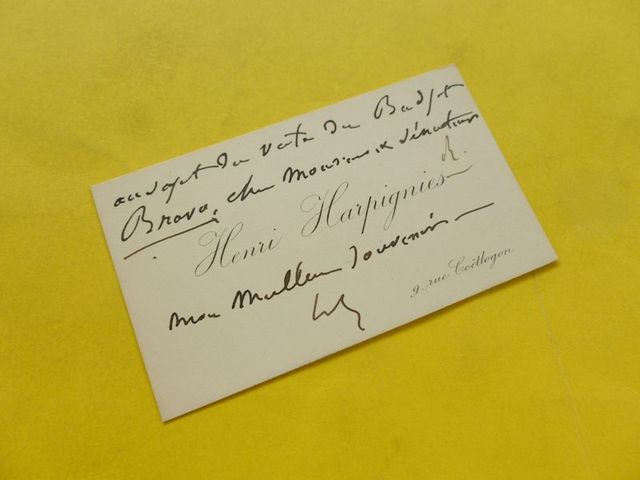 au sujet du vote du Budget
Bravo, cher Monsieur & Sénateur
Henri Harpignies
mon meilleur souvenir
9, rue Coëtlogon